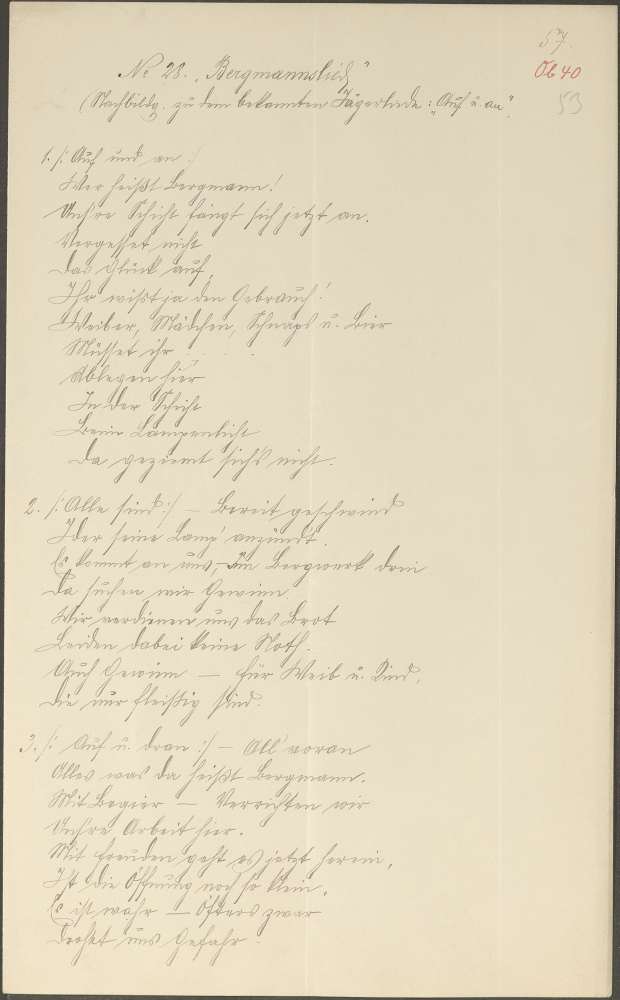 57.
Ob 40
53
No 28. „Bergmannslied“
(Nachbildg. zu dem bekannten Jägerliede: „Auf u. an“.
1. /: Auf und an :/
Wer heißt Bergmann!
Uns're Schicht fängt sich jetzt an.
Vergesset nicht
Das Glück auf,
Ihr wißt ja den Gebrauch!
Weiber, Mädchen, Schnaps u. Bier
Müsset ihr . . . .
Ablegen hier
In der Schicht
Beim Lampenlicht
Da geziemt sich's nicht.
2. /: Alle sind :/ – Bereit geschwind
Jeder seine Lamp' anzünd't.
Es kommt an uns, – Im Bergwerk drin
Da suchen wir Gewinn
Wir verdienen uns das Brot
Leiden dabei keine Noth.
Auch Gewinn — für Weib u. Kind,
Die nur fleißig sind.
3. /: Auf u. dran :/ – All' voran
Alles was da heißt Bergmann.
Mit Begier — Verrichten wir
Uns're Arbeit hier.
Mit Freuden geht es jetzt herein,
Ist die Öffnung noch so klein,
Es ist wahr — Öfters zwar
Drohet uns Gefahr.